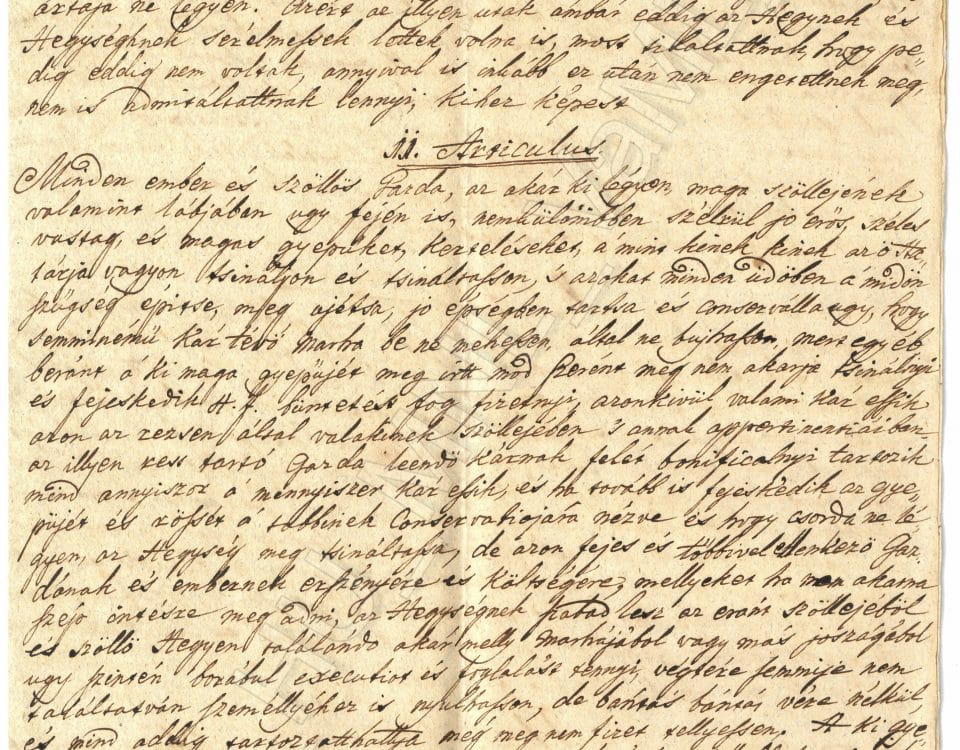 artaja ne légyen. Azért az illyen utak ambár eddig az Hegynek és
Hegységhnek sérelmessek lőttek volna is, most tilaltattnak, hogy pe„
dig eddig nem voltak, annyival is inkább ez után nem engetettnek meg,
nem is admitáltattnak lennyi; kihez képest
11. Articulus.
Minden ember és szőllős Gazda, az akár ki légyen, maga szőllejének
valamint lábjában ugy fején is, nemkülömbben szélrül jo erős, széles
vastag, és magas gyepüket, kerteléseket, a mint kinek kinek az ő Ha„
tárja vagyon tsináljon és tsináltasson, 's azokat minden üdőben á midőn
szügség épitse, meg ujétsa, jo épségben tartsa és conserválla ugy, hogy
semminémű kár tévő marha be ne mehessen, által ne bujhasson, mert egyéb
beránt á ki maga gyepüjét meg írtt mód szerént meg nem akarja tsinálnyi
és fejeskedik H. f. büntetést fog fizetnyi, azonkivül valami kár essik
azon az részen által valakinek szőllejében 's annak appertinentiáiban
az illyen resst tartó Gazda leendő kárnak felét bonificalnyi tartozik
mind annyiszor á mennyiszer kár essik, és ha tovább is fejeskedik az gye„
püjét és á többinek Conservatiojára nézve és hogy csorda ne lé„
gyen, az Hegység meg tsináltassa, de azon fejes és többivel ellenkező Gaz„
dának és embernek erszényére és költségére, mellyeket ha nem akarna
szép intésre meg adni, az Hegységnek szabad lesz az eránt szőllejéből
és szőllő Hegyen találándó akármelly marhájábol vagy más joszágábol
ugy szintén borábul executiot és foglalást tennyi, végtére semmije nem
találtatván személlyéhez is nyulhasson, de bántás bántás vére nélkül,
és mind addig tartoztatthattya még meg nem fizet tellyessen. A ki gye„